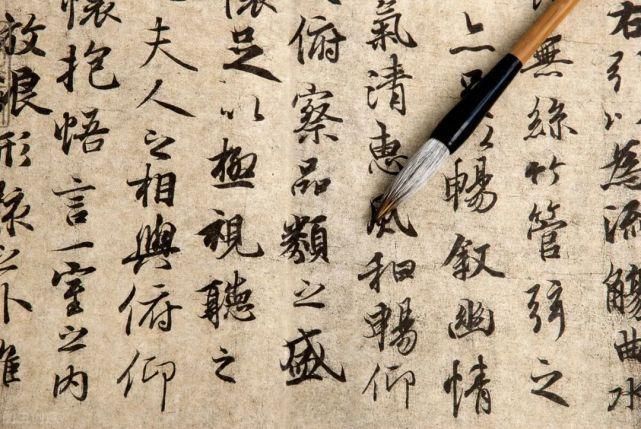 右引以為流觴曲水
無絲竹管弦之
亦足以暢敘幽情
氣清惠風和暢仰
俯察品類之盛
懷足以極視聽之
夫人之相與俯仰
懷抱悟言一室之內
放浪形骸之外雖